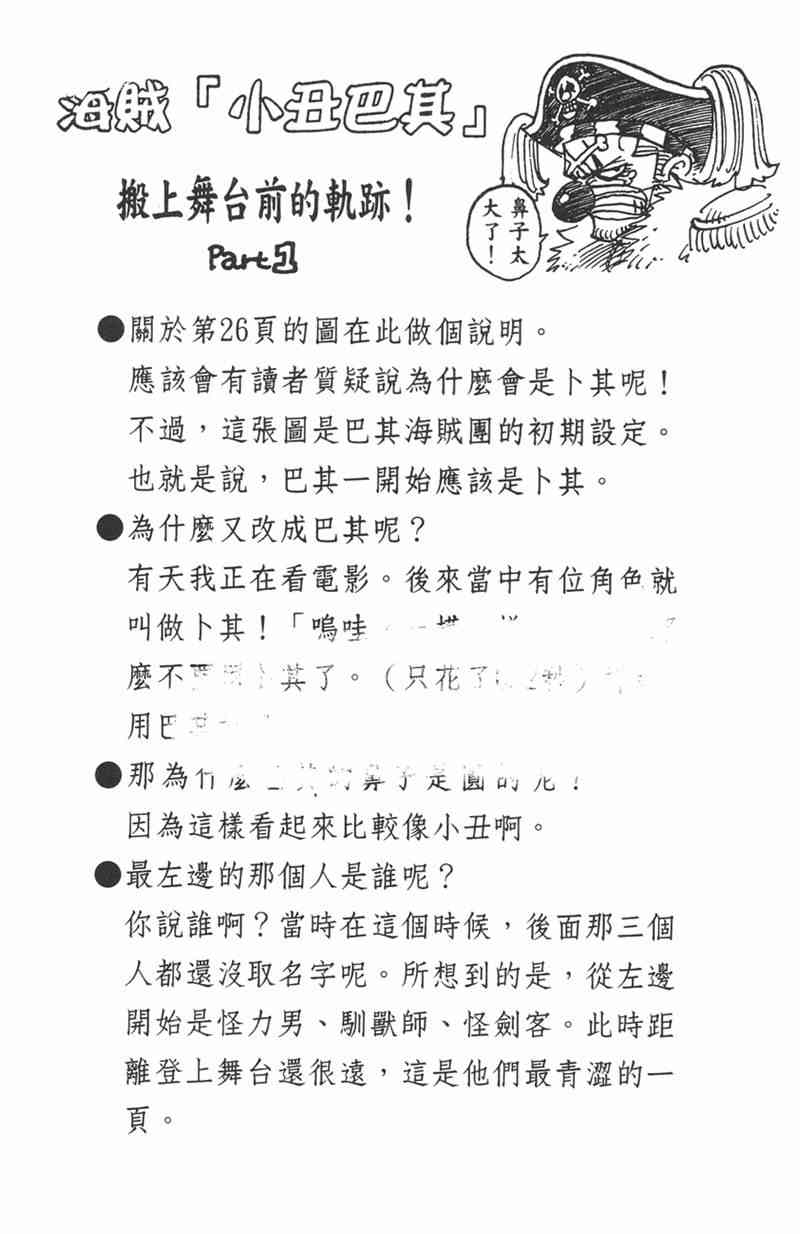 海賊「小丑巴其」
搬上舞台前的軌跡！
Part1
鼻子太
大了！
●關於第26頁的圖在此做個說明。
應該會有讀者質疑說為什麼會是卜其呢！
不過，這張圖是巴其海賊團的初期設定。
也就是說，巴其一開始應該是卜其。
●為什麼又改成巴其呢？
有天我正在看電影。後來當中有位角色就
叫做卜其！「嗚哇
麼不要用卜其了。（只花了
用巴其
●那為什麼巴其的鼻子是圓的呢！
因為這樣看起來比較像小丑啊。
●最左邊的那個人是誰呢？
你說誰啊？當時在這個時候，後面那三個
人都還沒取名字呢。所想到的是，從左邊
開始是怪力男、馴獸師、怪劍客。此時距
離登上舞台還很遠，這是他們最青澀的一
頁。